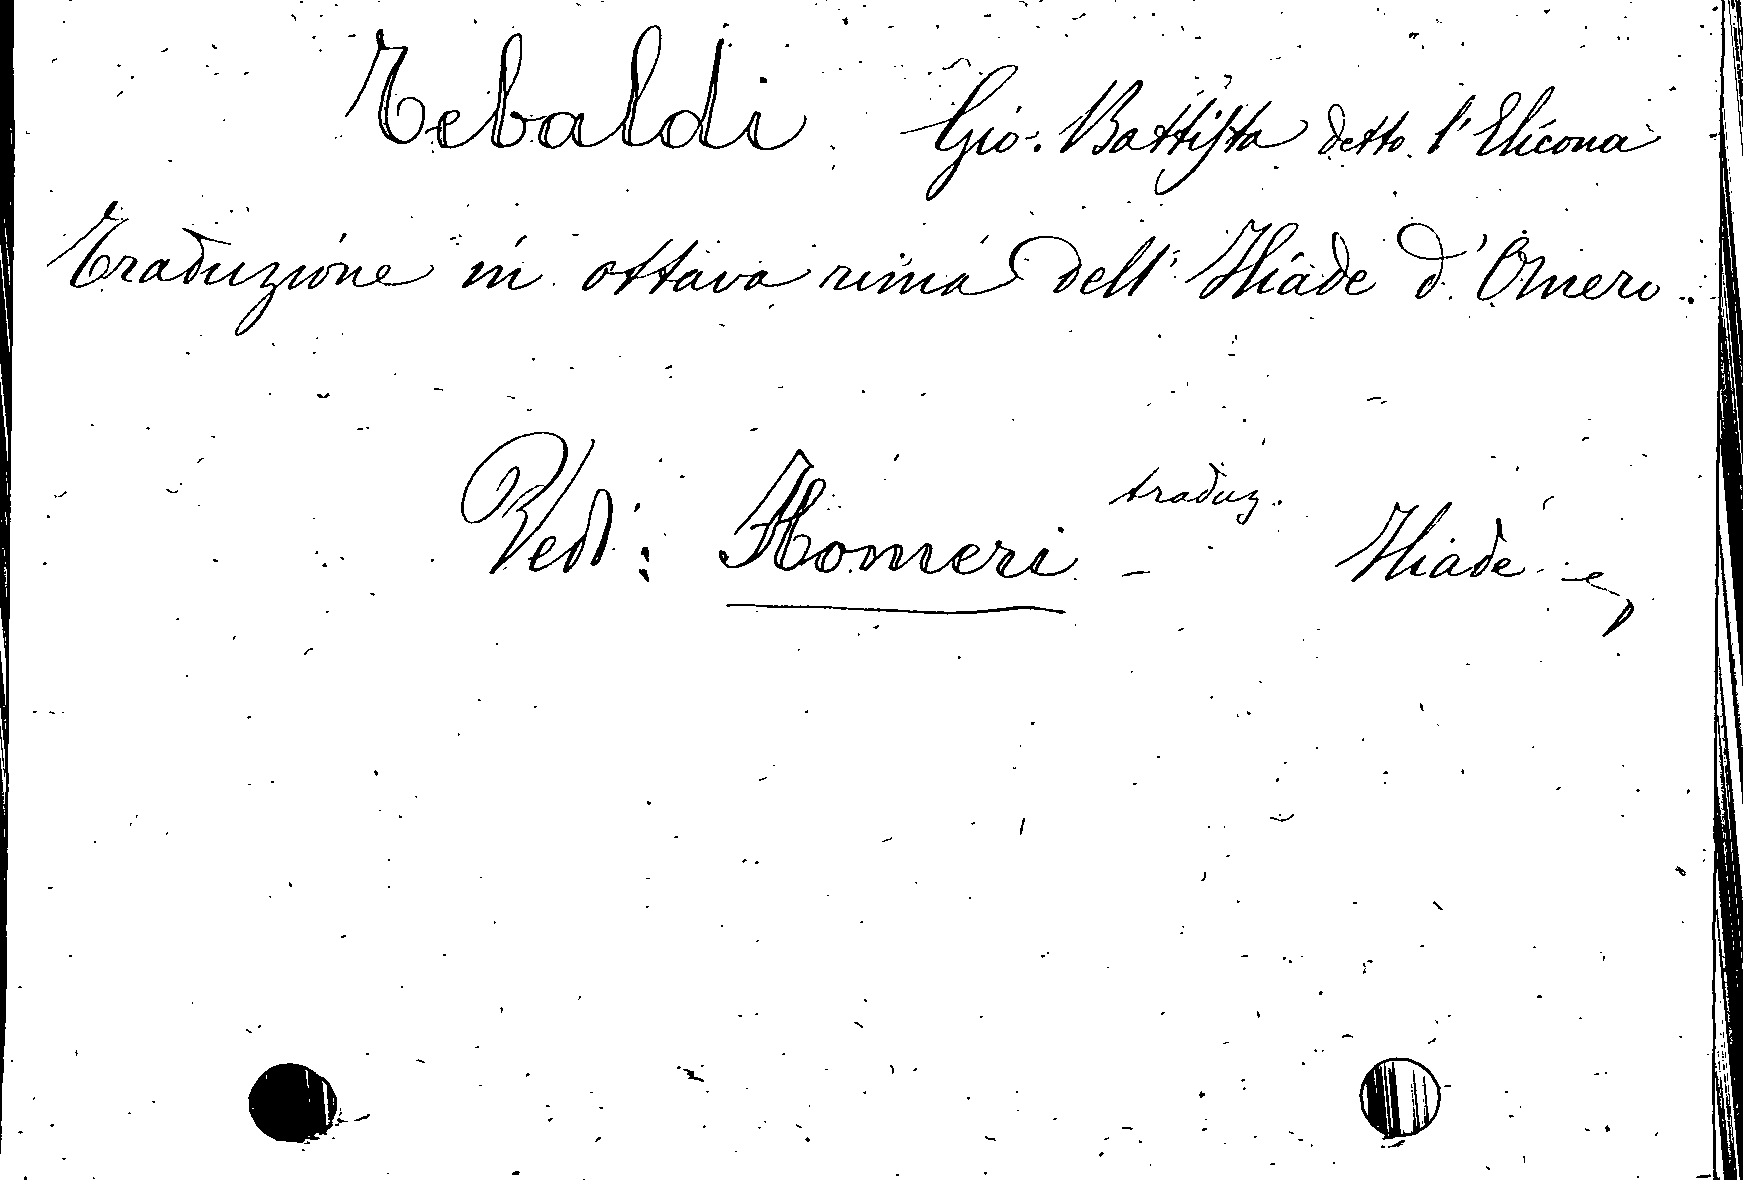 Tebaldi Gio. Battista detto l'Elicona
Traduzione in ottava rima dell'Iliade d'Omero.
Vedi: Homeri - traduz. Iliade